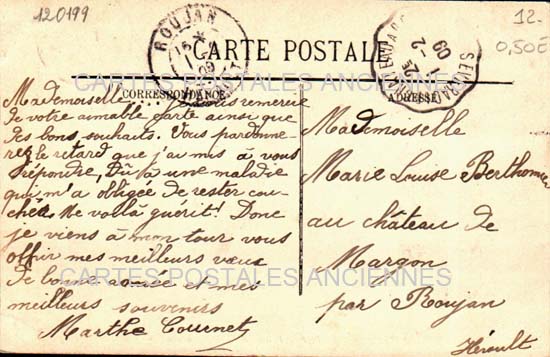 120199
12.
0,50E
ROUJAN
15
1
09
HERAULT
09
CARTE POSTALE
CARTES POSTALES ANCIENNES
CORRESPONDANCE
ADRESSE
Mademoiselle... Je vous remercie
de votre aimable carte ainsi que
des bons souhaits. Vous pardonne-
rez le retard que j'ai mis à vous
répondre, Dû à une maladie
qui m'a obligée de rester cou-
chée. Me voilà guérit! Donc
je viens à mon tour vous
offrir mes meilleurs vœux
de bonne année et mes
meilleurs souvenirs
Marthe Tournet
Mademoiselle
Marie Louise Berthomieu
au château de
Margon
par Roujan
Hérault
CARTES POSTALES ANCIENNES